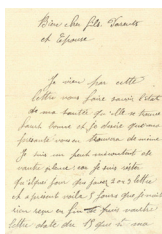 Bien cher fils. Parents
et Epouse
Je vien par cette
lettre vous faire savoir l'état
de ma santée qu'elle se trouve
fourt bonne et je désir que ma
présente vous en trouvera de même
Je suis un peut
vautre
que jour de jours 2 ou 3 lettre
et a présent voila 5 jours que je n'ait
rien reçu en fin
lettre daté du 13 que